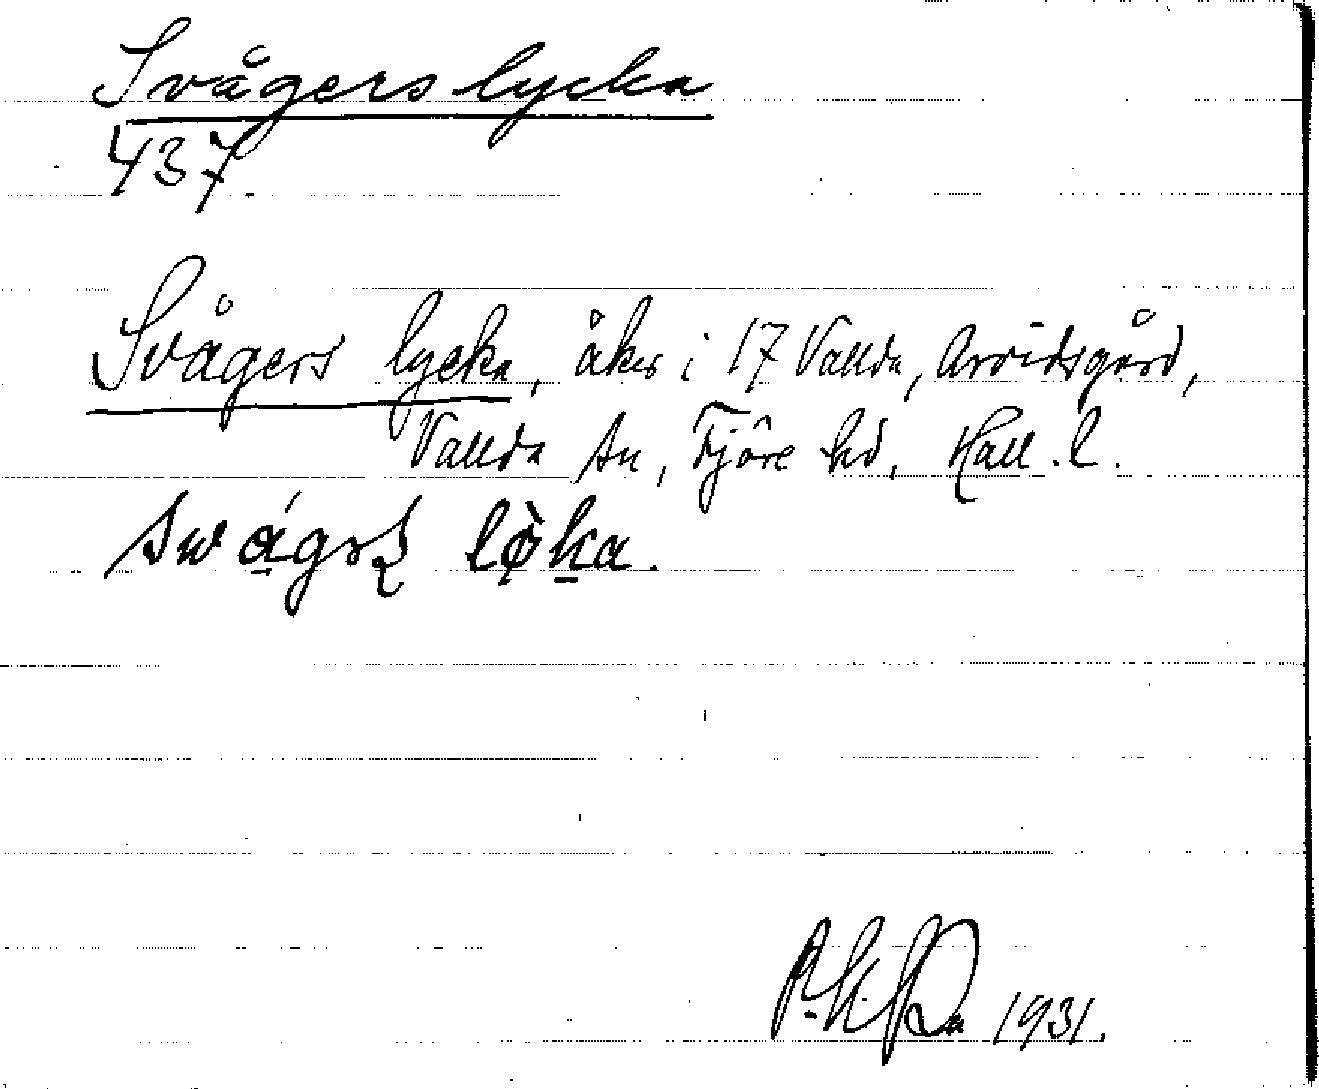 Svågers lycka
437.
Svågers lycka, åker i 17 Vallda, Arvidsgård,
Vallda sn, Fjäre hd, Hall. l.
1931.